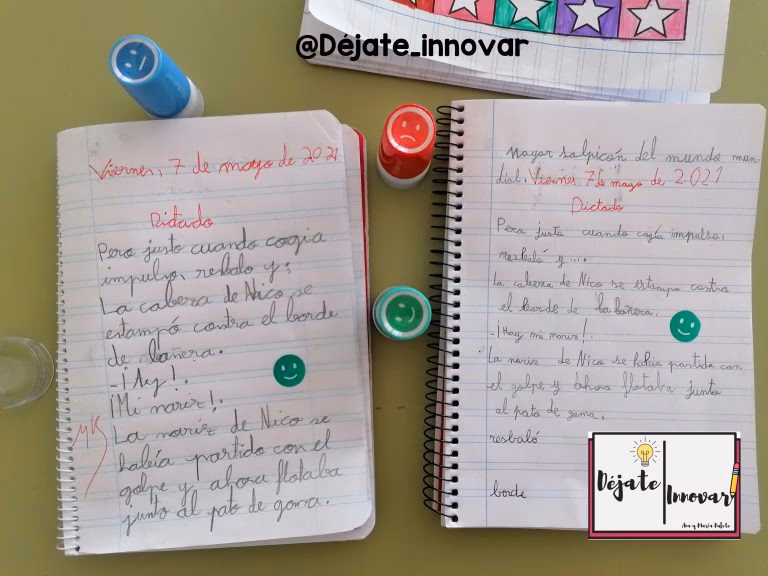 @Déjate_innovar
Viernes, 7 de mayo de 2021
Dictado
Pero justo cuando cogia
impulso, resbalo y:
La cabeza de Nico se
estampó contra el borde
de bañera.
-¡Ay!.
¡Mi nariz!.
La nariz de Nico se
había partido con el
golpe y, ahora flotaba
junto al pato de goma.
Mayor salpicón del mundo mun-
dial. Viernes 7 de mayo de 2.021
Dictado
Pero justo cuando cogía impulso,
resbaló y...
La cabeza de Nico se estampo contra
el borde de la bañera.
-¡Hay mi nariz!.
La nariz de Nico se había partido con
el golpe y ahora flotaba junto
al pato de goma.
resbaló
borde
Déjate Innovar
Ana y María Batete